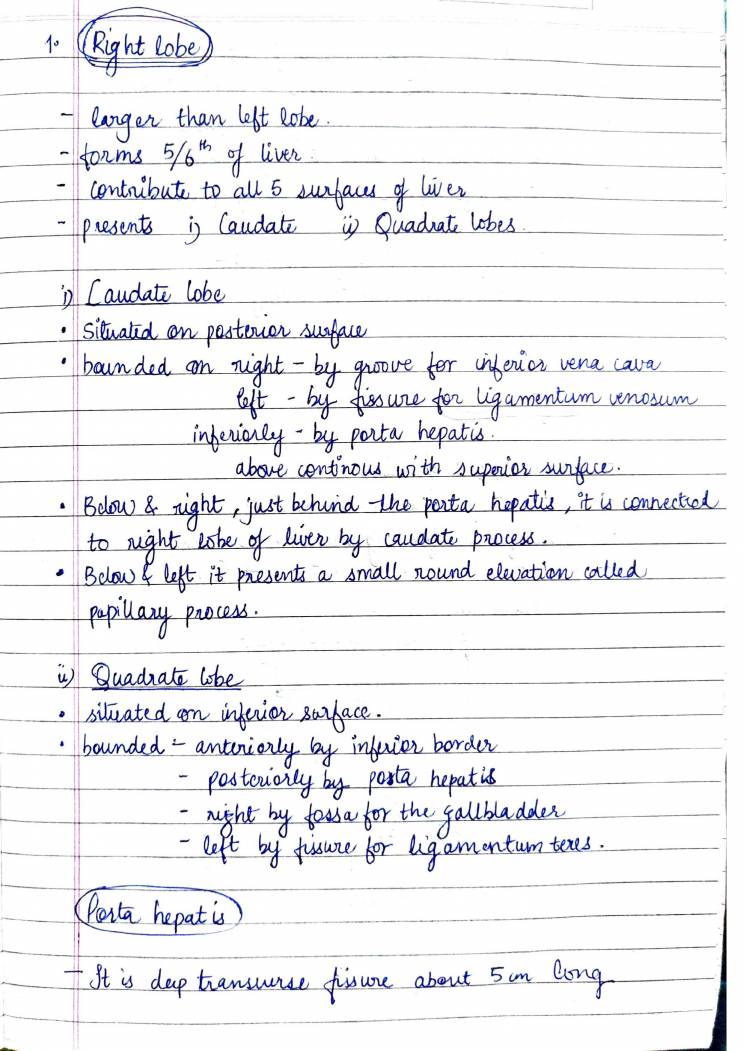 1. Right lobe
- larger than left lobe.
- forms 5/6th of liver.
- contribute to all 5 surfaces of liver
- presents i) Caudate ii) Quadrate lobes.
i) Caudate lobe
• Situated on posterior surface
• bounded on right - by groove for inferior vena cava
left - by fissure for ligamentum venosum
inferiorly - by porta hepatis.
above continous with superior surface.
• Below & right, just behind the porta hepatis, it is connected
to right lobe of liver by caudate process.
• Below & left it presents a small round elevation called
papillary process.
ii) Quadrate lobe
• situated on inferior surface.
• bounded - anteriorly by inferior border
- posteriorly by porta hepatis
- right by fossa for the gallbladder
- left by fissure for ligamentum teres.
Porta hepatis
- It is deep transverse fissure about 5 cm long